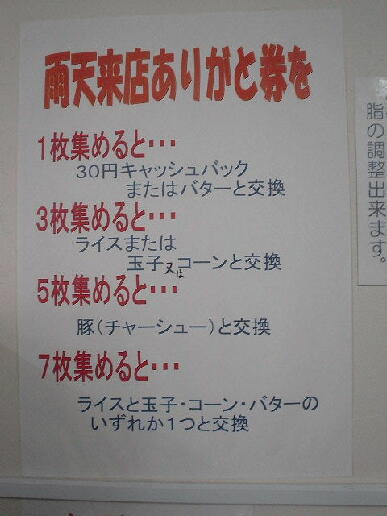 雨天来店ありがと券を
1枚集めると・・・
30円キャッシュバック
またはバターと交換
3枚集めると・・・
ライスまたは
玉子又はコーンと交換
5枚集めると・・・
豚(チャーシュー)と交換
7枚集めると・・・
ライスと玉子・コーン・バターの
いずれか1つと交換
脂の調整出来ます。